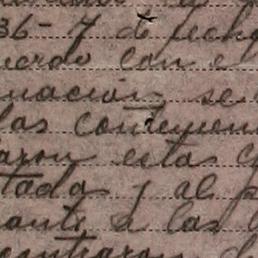 36-7 de fecha
uerdo con e
uación se
las conducen
aron estas c
tadas y al p
ante a las